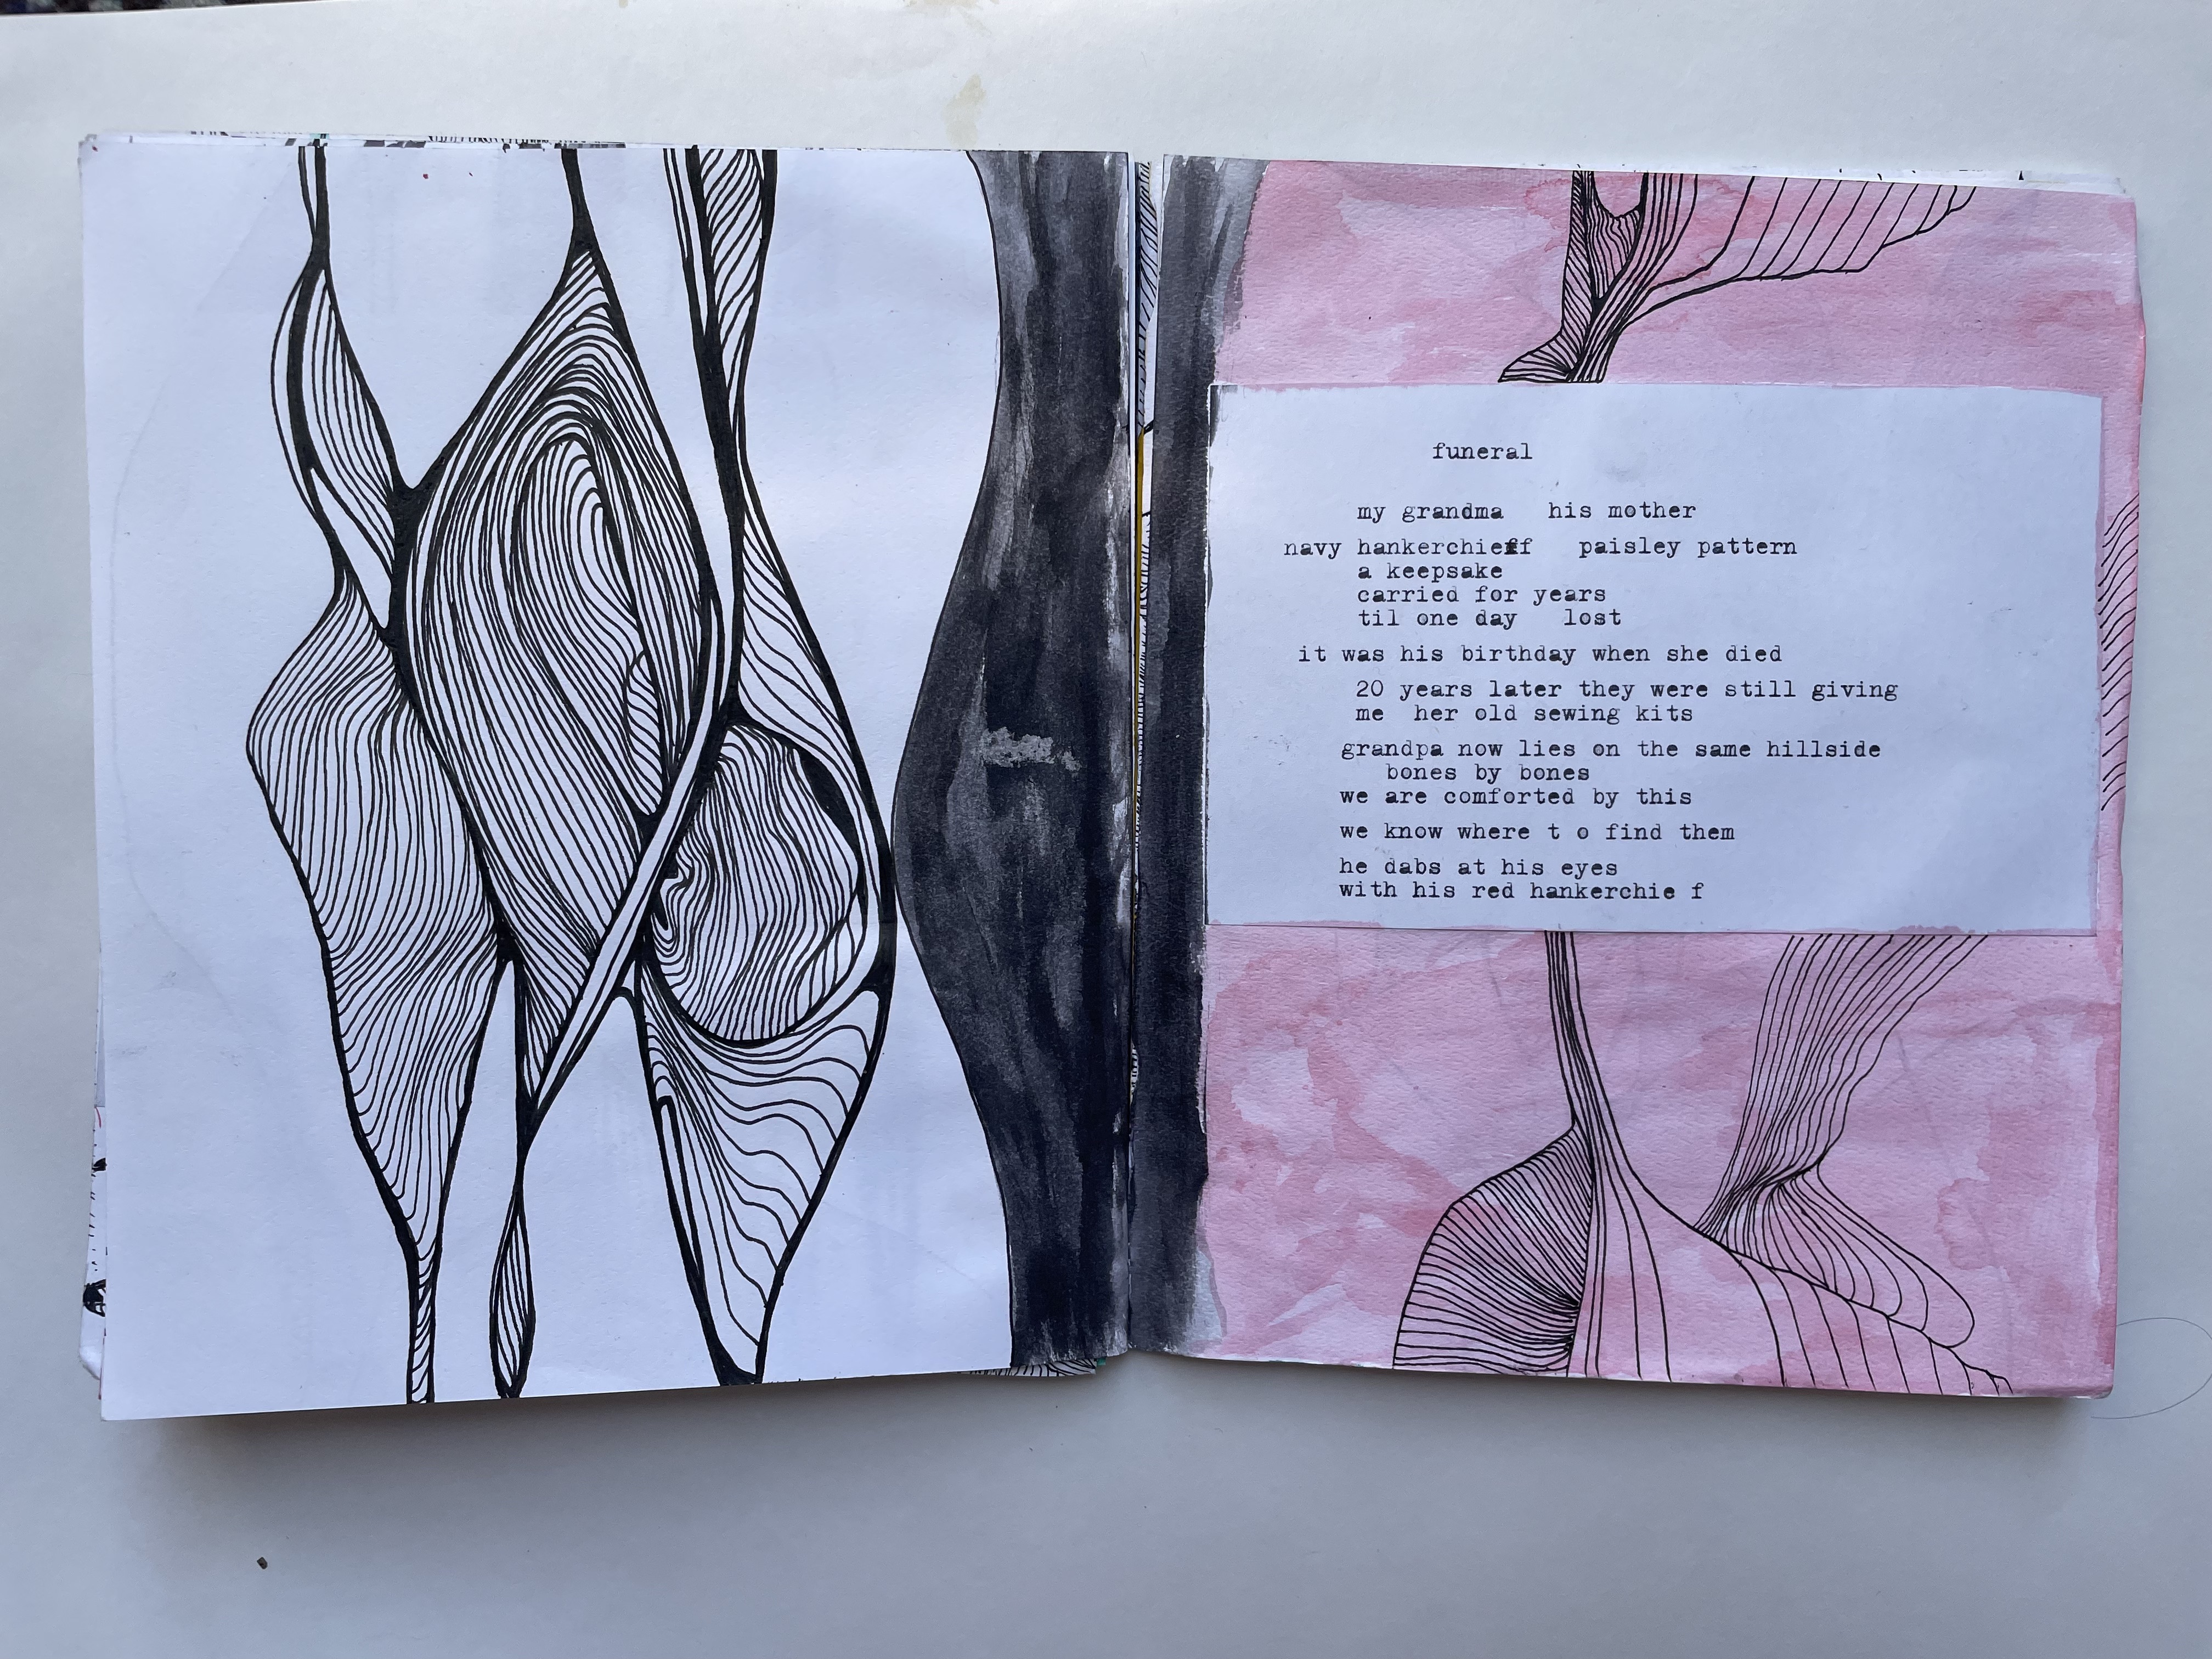 funeral
my grandma his mother
navy hankerchieff paisley pattern
a keepsake
carried for years
til one day lost
it was his birthday when she died
20 years later they were still giving
me her old sewing kits
grandpa now lies on the same hillside
bones by bones
we are comforted by this
we know where t o find them
he dabs at his eyes
with his red hankerchie f